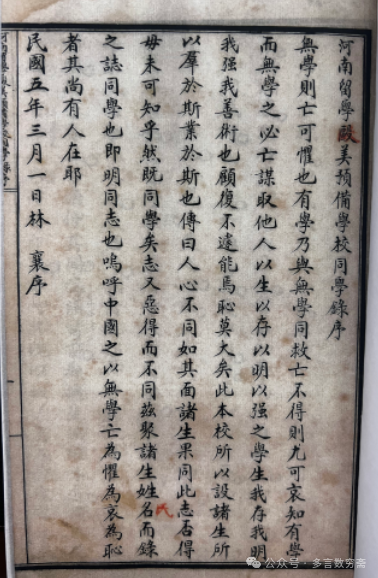 河南留學歐美預備學校同學錄序
無學則亡可懼也有學乃與無學同救亡不得則尤可哀知有學
而無學之必亡謀取他人以生以存以明以强之學生我存我明
我强我善術也顧復不遠能焉恥莫大矣此本校所以設諸生所
以羣於斯業於斯也傳曰人心不同如其面諸生果同此志否得
毋未可知乎然既同學矣志又惡得而不同茲聚諸生姓名而錄
氏
之誌同學也即明同志也嗚呼中國之以無學亡為懼為哀為恥
者其尚有人在耶
民國五年三月一日林 襄序
公众号 · 多言数穷斋